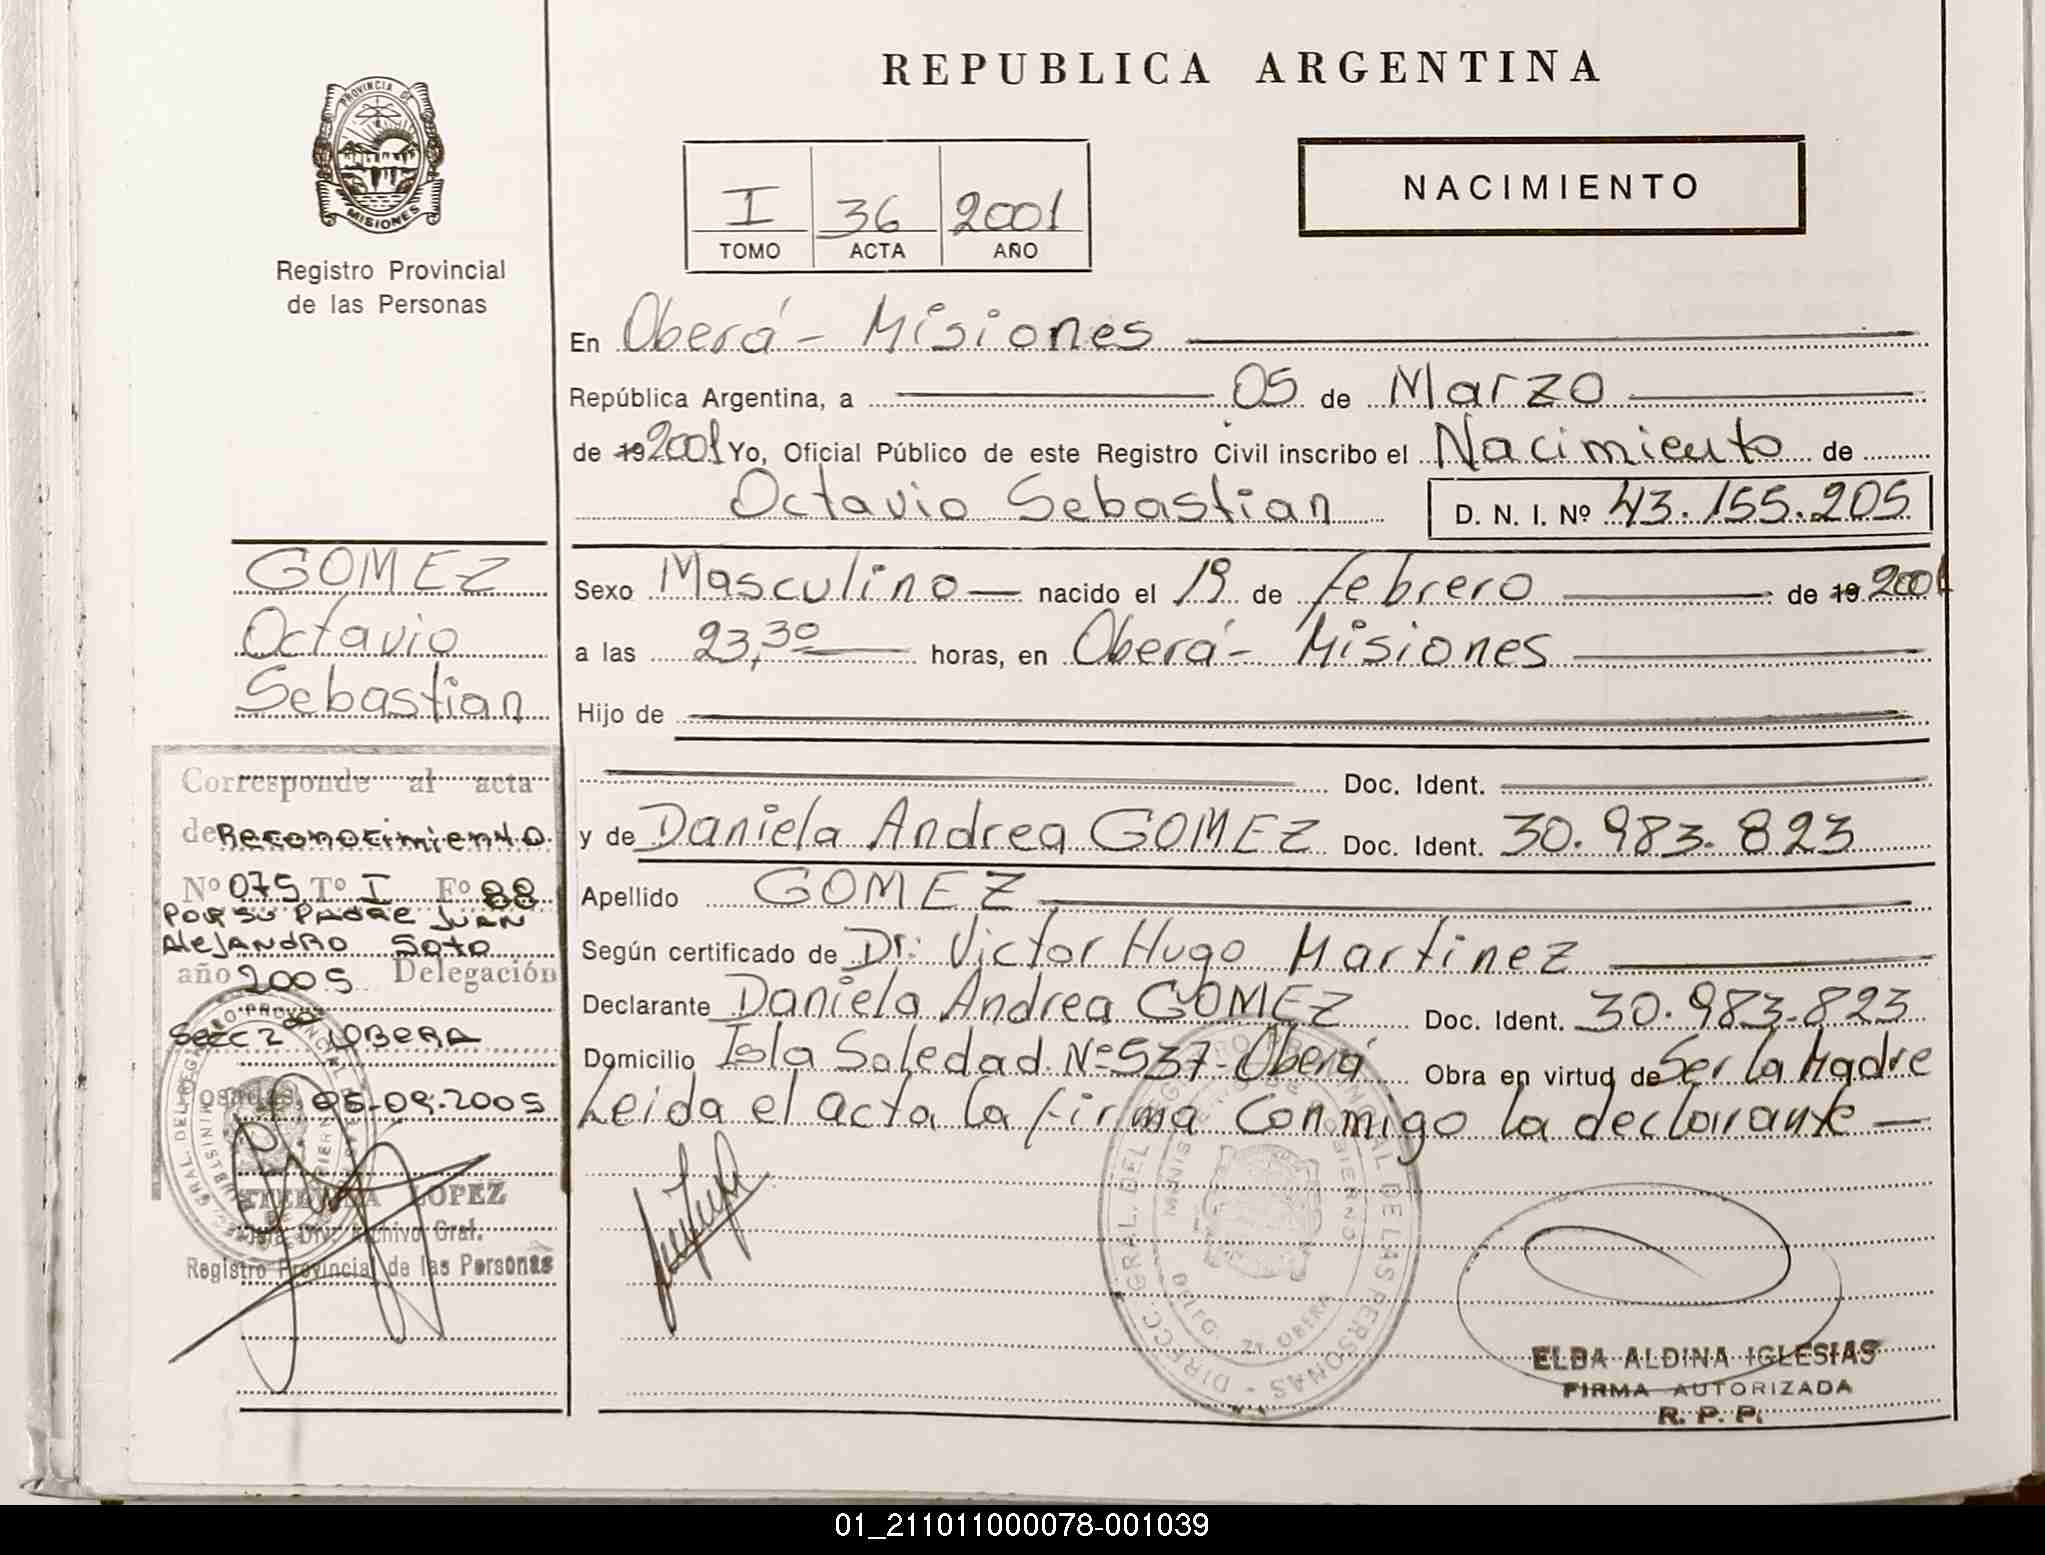 REPUBLICA ARGENTINA
PROVINCIA DE
MISIONES
Registro Provincial
de las Personas
I 36 2001
TOMO ACTA AÑO
NACIMIENTO
En Oberá - Misiones
República Argentina, a 05 de Marzo
de 19 2001 Yo, Oficial Público de este Registro Civil inscribo el Nacimiento de
Octavio Sebastian D. N. I. Nº 43.155.205
GOMEZ
Octavio
Sebastian
Sexo Masculino nacido el 19 de febrero de 19 2001
a las 23,30 horas, en Oberá - Misiones
Hijo de
Doc. Ident.
y de Daniela Andrea GOMEZ Doc. Ident. 30.983.823
Apellido GOMEZ
Según certificado de Dr: Victor Hugo Martinez
Declarante Daniela Andrea GOMEZ Doc. Ident. 30.983.823
Domicilio Isla Soledad Nº 537 - Oberá Obra en virtud de Ser la Madre
Leida el acta la firma conmigo la declarante
Corresponde al acta
de Reconocimiento
Nº 075 Tº I Fº 88
POR SU PADRE JUAN
AleJANDRO Soto
año 2005 Delegación
Secc 2da OBERA
Posadas, 05-09-2005
LOPEZ
Div. Archivo Gral.
Registro Provincial de las Personas
DIRECC. GRAL. DEL REGISTRO PROVINCIAL DE LAS PERSONAS
MINISTERIO DE GOBIERNO
DELEG. OBERA
ELBA ALDINA IGLESIAS
FIRMA AUTORIZADA
R. P. P.
01_211011000078-001039